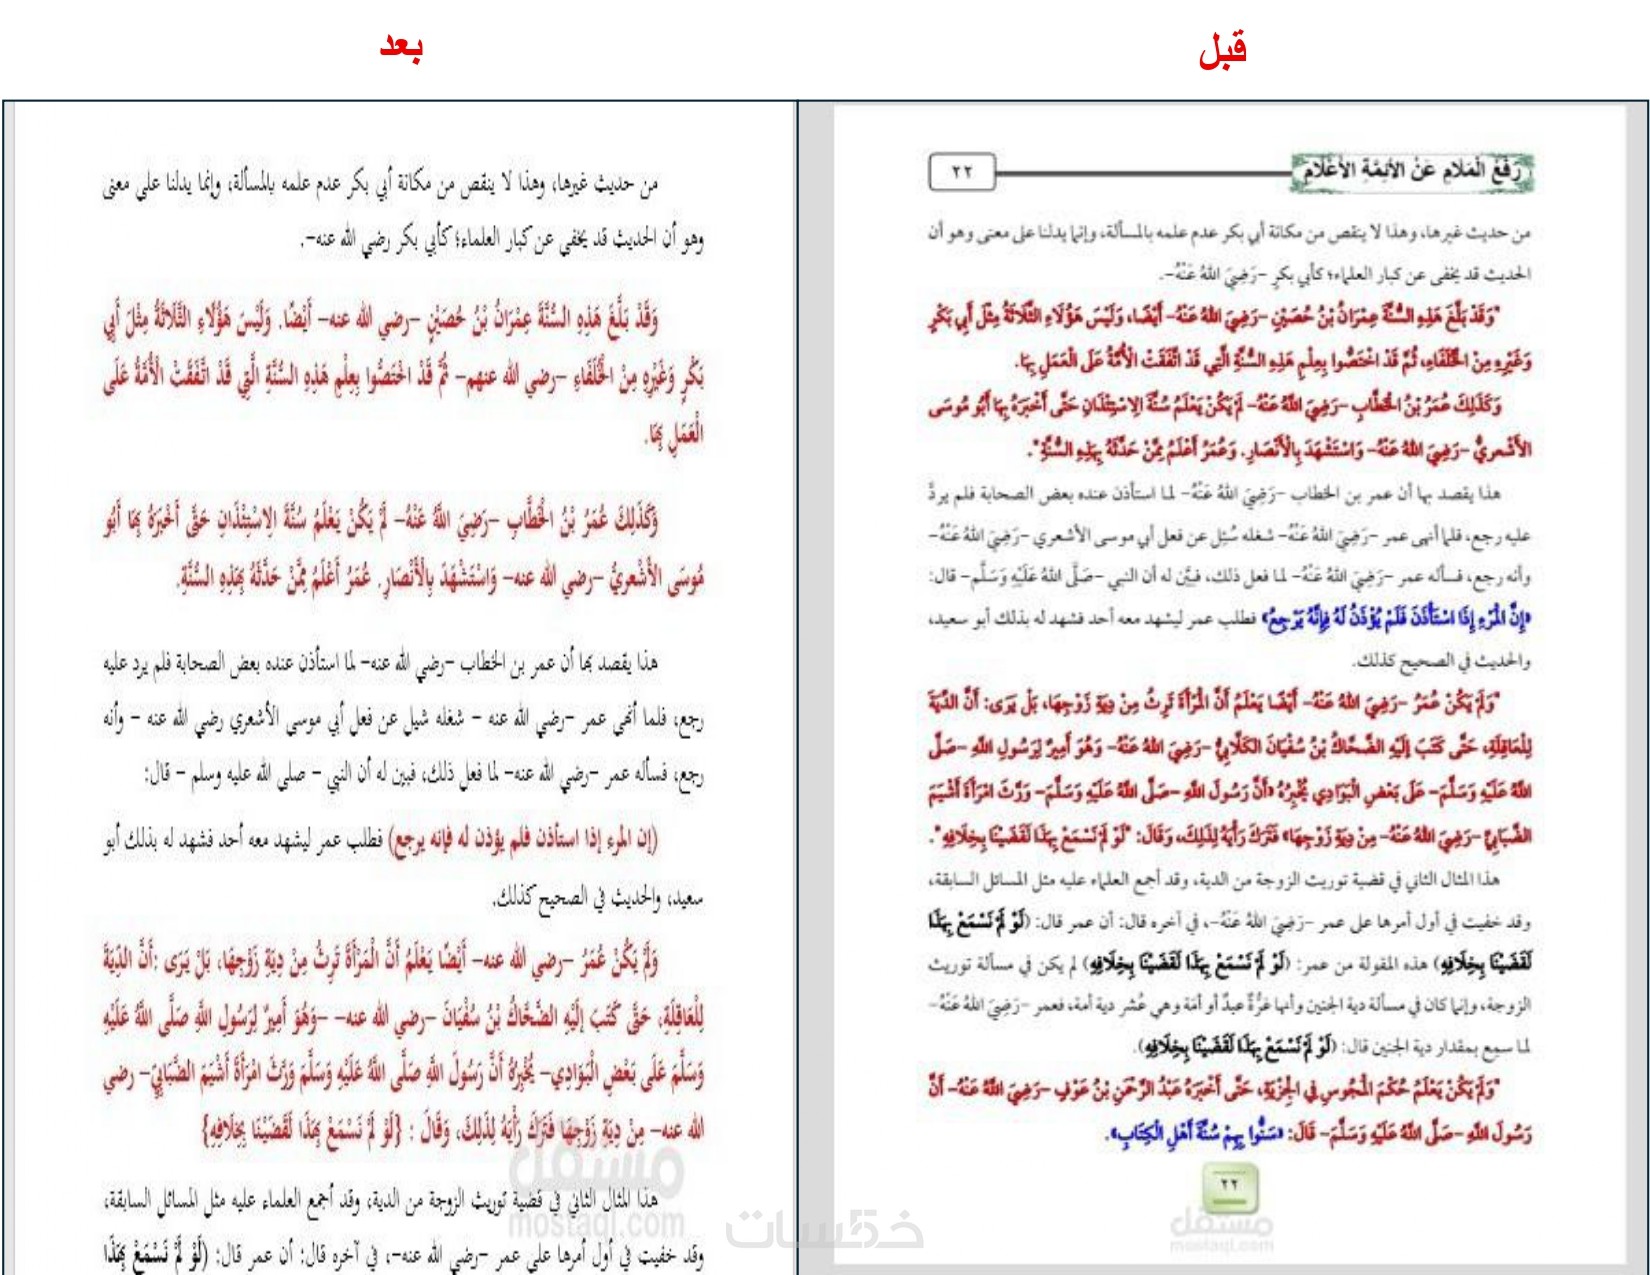 قبل
بعد
رَفْعُ الْمَلَامِ عَنْ الْأَئِمَّةِ الْأَعْلَامِ
٢٢
من حديث غيرها، وهذا لا ينقص من مكانة أبي بكر عدم علمه بالمسألة، وإنما يدلنا على معنى وهو أن
الحديث قد يخفى عن كبار العلماء؛ كأبي بكرٍ –رَضِيَ اللهُ عَنْهُ–.
"وَقَدْ بَلَّغَ هَذِهِ السُّنَّةَ عِمْرَانُ بْنُ حُصَيْنٍ –رَضِيَ اللهُ عَنْهُ– أَيْضًا، وَلَيْسَ هَؤُلَاءِ الثَّلَاثَةُ مِثْلَ أَبِي بَكْرٍ
وَغَيْرِهِ مِنْ الْخُلَفَاءِ، ثُمَّ قَدْ اخْتَصُّوا بِعِلْمِ هَذِهِ السُّنَّةِ الَّتِي قَدْ اتَّفَقَتْ الْأُمَّةُ عَلَى الْعَمَلِ بِهَا.
وَكَذَلِكَ عُمَرُ بْنُ الْخَطَّابِ –رَضِيَ اللهُ عَنْهُ– لَمْ يَكُنْ يَعْلَمُ سُنَّةَ الِاسْتِئْذَانِ حَتَّى أَخْبَرَهُ بِهَا أَبُو مُوسَى
الْأَشْعَرِيُّ –رَضِيَ اللهُ عَنْهُ– وَاسْتَشْهَدَ بِالْأَنْصَارِ. وَعُمَرُ أَعْلَمُ مِمَّنْ حَدَّثَهُ بِهَذِهِ السُّنَّةِ".
هذا يقصد بها أن عمر بن الخطاب –رَضِيَ اللهُ عَنْهُ– لما استأذن عنده بعض الصحابة فلم يردَّ
عليه رجع، فلما أنهى عمر –رَضِيَ اللهُ عَنْهُ– شغله سُئِل عن فعل أبي موسى الأشعري –رَضِيَ اللهُ عَنْهُ–
وأنه رجع، فسأله عمر –رَضِيَ اللهُ عَنْهُ– لما فعل ذلك، فبيَّن له أن النبي –صَلَّى اللهُ عَلَيْهِ وَسَلَّمَ– قال:
«إِنَّ الْمَرْءَ إِذَا اسْتَأْذَنَ فَلَمْ يُؤْذَنْ لَهُ فَإِنَّهُ يَرْجِعُ» فطلب عمر ليشهد معه أحد فشهد له بذلك أبو سعيد،
والحديث في الصحيح كذلك.
"وَلَمْ يَكُنْ عُمَرُ –رَضِيَ اللهُ عَنْهُ– أَيْضًا يَعْلَمُ أَنَّ الْمَرْأَةَ تَرِثُ مِنْ دِيَةِ زَوْجِهَا، بَلْ يَرَى: أَنَّ الدِّيَةَ
لِلْعَاقِلَةِ، حَتَّى كَتَبَ إِلَيْهِ الضَّحَّاكُ بْنُ سُفْيَانَ الكِلَّابِيُّ –رَضِيَ اللهُ عَنْهُ– وَهُوَ أَمِيرٌ لِرَسُولِ اللهِ –صَلَّى
اللهُ عَلَيْهِ وَسَلَّمَ– عَلَى بَعْضِ الْبَوَادِي يُخْبِرُهُ «أَنَّ رَسُولَ اللهِ –صَلَّى اللهُ عَلَيْهِ وَسَلَّمَ– وَرَّثَ امْرَأَةَ أَشْيَمَ
الضِّبَابِيِّ –رَضِيَ اللهُ عَنْهُ– مِنْ دِيَةِ زَوْجِهَا» فَتَرَكَ رَأْيَهُ لِذَلِكَ، وَقَالَ: "لَوْ لَمْ نَسْمَعْ بِهَذَا لَقَضَيْنَا بِخِلَافِهِ".
هذا المثال الثاني في قضية توريث الزوجة من الدية، وقد أجمع العلماء عليه مثل المسائل السابقة،
وقد خفيت في أول أمرها على عمر –رَضِيَ اللهُ عَنْهُ–، في آخره قال: أن عمر قال: (لَوْ لَمْ نَسْمَعْ بِهَذَا
لَقَضَيْنَا بِخِلَافِهِ) هذه المقولة من عمر: (لَوْ لَمْ نَسْمَعْ بِهَذَا لَقَضَيْنَا بِخِلَافِهِ) لم يكن في مسألة توريث
الزوجة، وإنما كان في مسألة دية الجنين وأنها غرَّةٌ عبدٌ أو أمَة وهي عُشر دية أمه، فعمر –رَضِيَ اللهُ عَنْهُ–
لما سمع بمقدار دية الجنين قال: (لَوْ لَمْ نَسْمَعْ بِهَذَا لَقَضَيْنَا بِخِلَافِهِ).
"وَلَمْ يَكُنْ يَعْلَمُ حُكْمَ الْمَجُوسِ فِي الْجِزْيَةِ، حَتَّى أَخْبَرَهُ عَبْدُ الرَّحْمَنِ بْنُ عَوْفٍ –رَضِيَ اللهُ عَنْهُ– أَنَّ
رَسُولَ اللهِ –صَلَّى اللهُ عَلَيْهِ وَسَلَّمَ– قَالَ: «سَنُّوا بِهِمْ سُنَّةَ أَهْلِ الْكِتَابِ».
٢٢
مستقل
mostaql.com
من حديث غيرها، وهذا لا ينقص من مكانة أبي بكر عدم علمه بالمسألة، وإنما يدلنا على معنى
وهو أن الحديث قد يخفى عن كبار العلماء؛ كأبي بكر رضي الله عنه–.
وَقَدْ بَلَّغَ هَذِهِ السُّنَّةَ عِمْرَانُ بْنُ حُصَيْنٍ –رضي الله عنه– أَيْضًا. وَلَيْسَ هَؤُلَاءِ الثَّلَاثَةُ مِثْلَ أَبِي
بَكْرٍ وَغَيْرِهِ مِنْ الْخُلَفَاءِ –رضي الله عنهم– ثُمَّ قَدْ اخْتَصُّوا بِعِلْمِ هَذِهِ السُّنَّةِ الَّتِي قَدْ اتَّفَقَتْ الْأُمَّةُ عَلَى
الْعَمَلِ بِهَا.
وَكَذَلِكَ عُمَرُ بْنُ الْخَطَّابِ –رَضِيَ اللهُ عَنْهُ– لَمْ يَكُنْ يَعْلَمُ سُنَّةَ الِاسْتِئْذَانِ حَتَّى أَخْبَرَهُ بِهَا أَبُو
مُوسَى الْأَشْعَرِيُّ –رضي الله عنه– وَاسْتَشْهَدَ بِالْأَنْصَارِ. عُمَرُ أَعْلَمُ مِمَّنْ حَدَّثَهُ بِهَذِهِ السُّنَّةِ.
هذا يقصد بها أن عمر بن الخطاب –رضي الله عنه– لما استأذن عنده بعض الصحابة فلم يرد عليه
رجع، فلما أنهى عمر –رضي الله عنه – شغله شيل عن فعل أبي موسى الأشعري رضي الله عنه – وأنه
رجع، فسأله عمر –رضي الله عنه– لما فعل ذلك، فبين له أن النبي – صلى الله عليه وسلم – قال:
(إن المرء إذا استأذن فلم يؤذن له فإنه يرجع) فطلب عمر ليشهد معه أحد فشهد له بذلك أبو
سعيد، والحديث في الصحيح كذلك.
وَلَمْ يَكُنْ عُمَرُ –رضي الله عنه– أَيْضًا يَعْلَمُ أَنَّ الْمَرْأَةَ تَرِثُ مِنْ دِيَةِ زَوْجِهَا، بَلْ يَرَى :أَنَّ الدِّيَةَ
لِلْعَاقِلَةِ، حَتَّى كَتَبَ إِلَيْهِ الضَّحَّاكُ بْنُ سُفْيَانَ –رضي الله عنه– –وَهُوَ أَمِيرٌ لِرَسُولِ اللهِ صَلَّى اللهُ عَلَيْهِ
وَسَلَّمَ عَلَى بَعْضِ الْبَوَادِي– يُخْبِرُهُ أَنَّ رَسُولَ اللهِ صَلَّى اللهُ عَلَيْهِ وَسَلَّمَ وَرَّثَ امْرَأَةَ أَشْيَمَ الضِّبَابِيِّ– رضي
الله عنه– مِنْ دِيَةِ زَوْجِهَا فَتَرَكَ رَأْيَهُ لِذَلِكَ، وَقَالَ : {لَوْ لَمْ نَسْمَعْ بِهَذَا لَقَضَيْنَا بِخِلَافِهِ}
هذا المثال الثاني في قضية توريث الزوجة من الدية، وقد أجمع العلماء عليه مثل المسائل السابقة،
وقد خفيت في أول أمرها على عمر –رضي الله عنه–، في آخره قال: أن عمر قال: (لَوْ لَمْ نَسْمَعْ بِهَذَا
مستقل
mostaql.com
خمسات